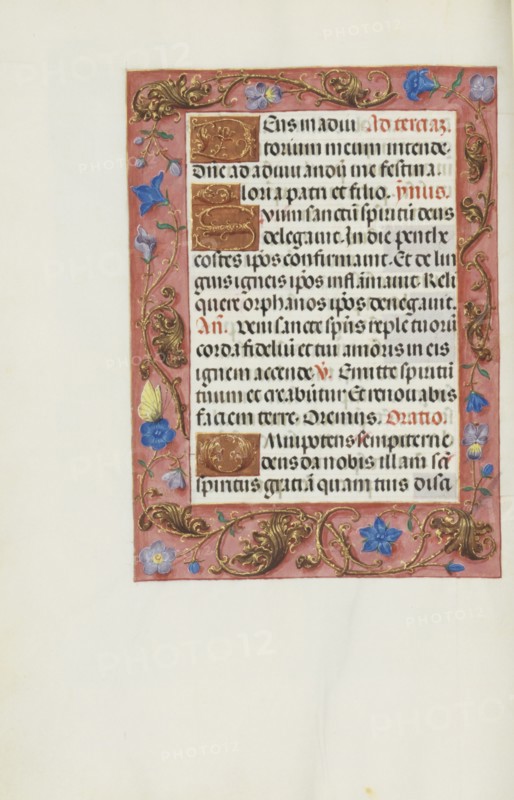 Deus in adiu Ad terciaz.
torium meum intende.
Dñe ad adiuuandũ me festina
Gloria patri et filio. ymnus.
Suum sanctũ spiritũ deus
delegauit. In die penthe
costes ipõs confirmauit. Et de lin
guis igneis ipõs inflãmauit Reli
quere orphanos ipõs denegauit.
An. veni sancte spũs reple tuorũ
corda fideliũ et tui amoris in eis
ignem accende V. Emitte spiritũ
tuum et creabũtur Et renouabis
faciem terre. Oremus. Oratio.
Omnipotens sempiterne
deus da nobis illam sci
spiritus gratiã quam tuis disci
PHOTO12
PHOTO12
PHOTO12
PHOTO12
PHOTO12